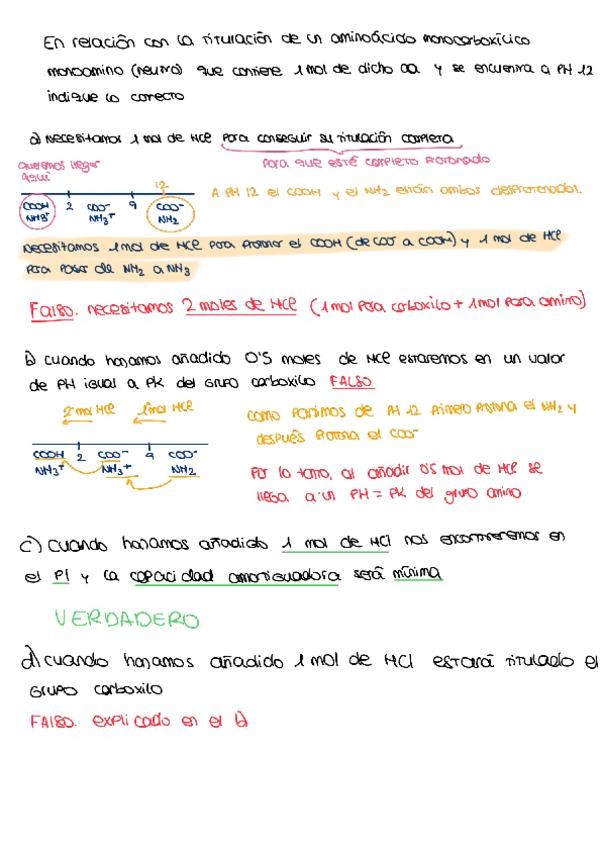 En relación con la titulación de un aminoácido monocarboxílico
monoamino (neutro) que contiene 1 mol de dicho aa y se encuentra a PH 12
indique lo correcto
a) Necesitamos 1 mol de HCl para conseguir su titulación completa
queremos llegar aquí
para que esté completo protonado
12
COOH 2 COO- 9 COO-
NH3+ NH3+ NH2
A PH 12 el COOH y el NH2 están ambos desprotonados.
Necesitamos 1 mol de HCl para protonar el COOH (de COO- a COOH) y 1 mol de HCl
para pasar de NH2 a NH3
Falso. necesitamos 2 moles de HCl (1 mol para carboxilo + 1 mol para amino)
b) cuando hayamos añadido 0'5 moles de HCl estaremos en un valor
de PH igual a PK del grupo carboxilo FALSO
2º mol HCl 1º mol HCl
COOH 2 COO- 9 COO-
NH3+ NH3+ NH2
como partimos de PH 12 primero protona el NH2 y
después protona el COO-
Por lo tanto, al añadir 0'5 mol de HCl se
llega a un PH = PK del grupo amino
c) cuando hayamos añadido 1 mol de HCl nos encontraremos en
el PI y la capacidad amortiguadora será mínima
VERDADERO
d) cuando hayamos añadido 1 mol de HCl estará titulado el
Grupo carboxilo
FALSO. explicado en el b)